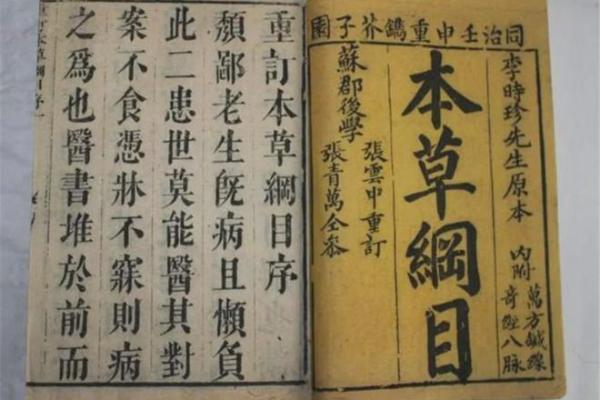 同治壬申重鐫芥子園
李時珍先生原本
內附
萬方鍼線
奇經八脉
本草綱目
蘇郡後學
張雲中重訂
張青萬仝參
重訂本草綱目序
頽鄙老生旣病且懶負
此二患世莫能醫其對
案不食憑牀不寐則病
之爲也醫書堆於前而
本草綱目序